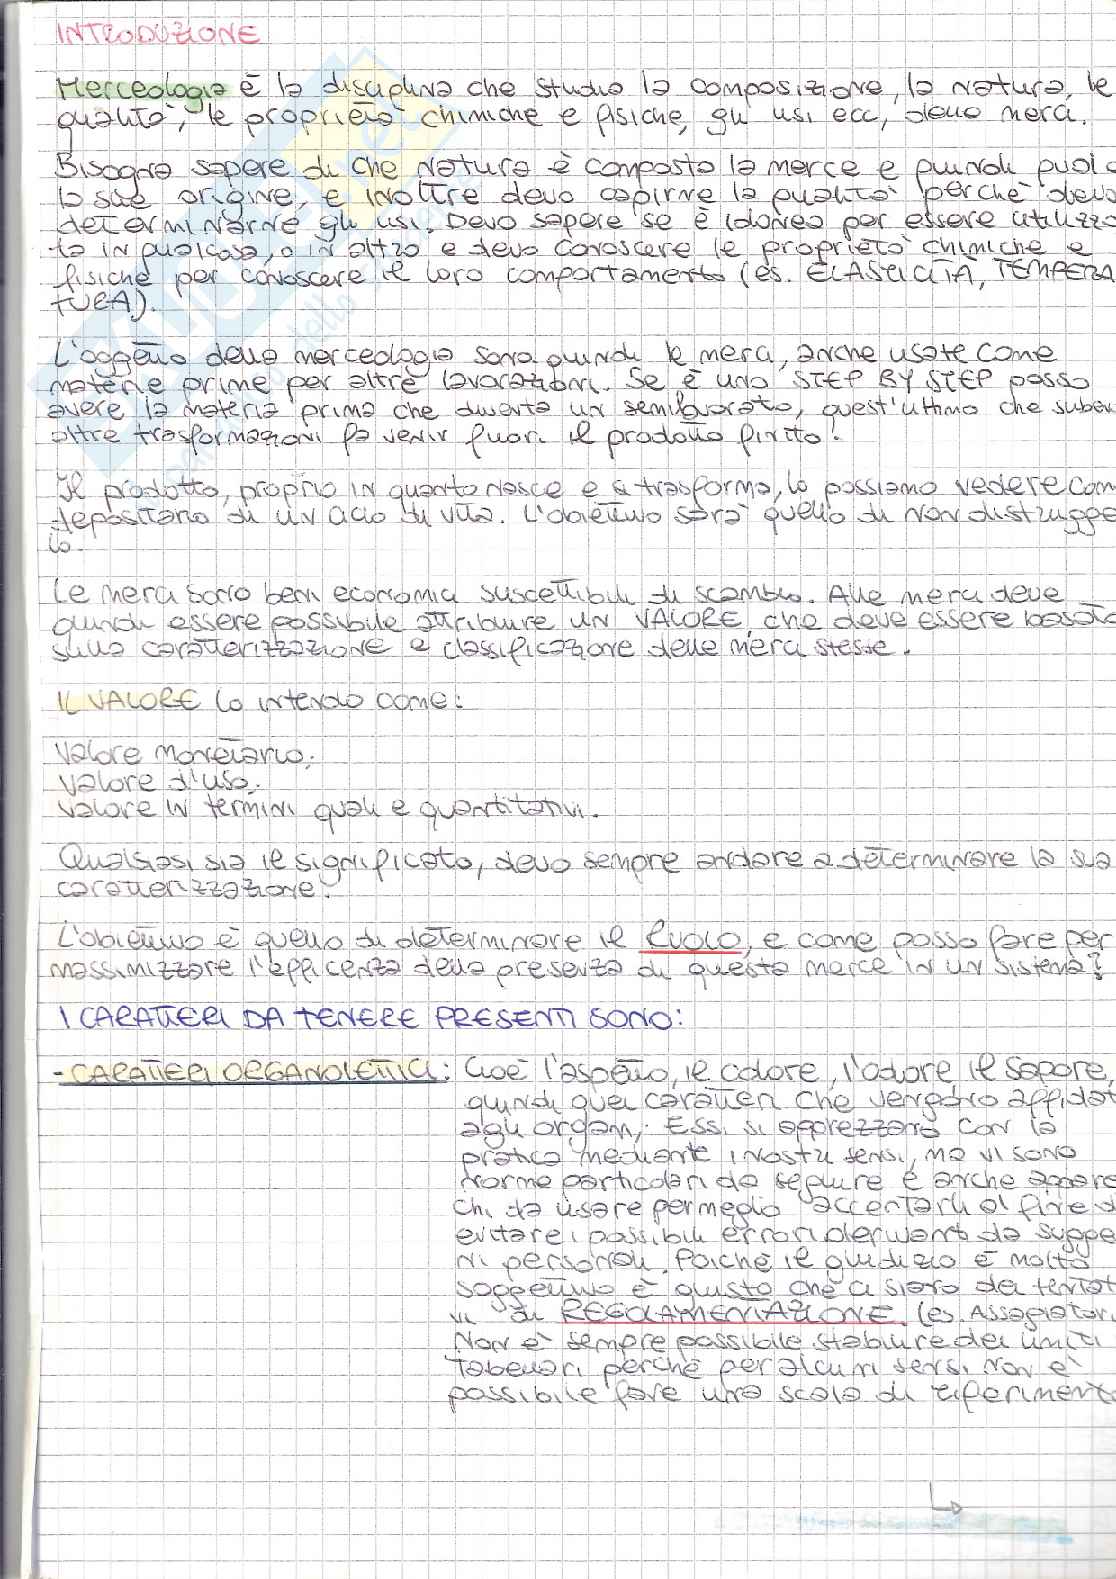 INTRODUZIONE
Merceologia è la disciplina che studia la composizione, la natura, le
qualità, le proprietà chimiche e fisiche, gli usi ecc, delle merci.
Bisogna sapere di che natura è composta la merce e quindi qual'è
la sua origine, e inoltre devo capirne la qualità perchè devo
determinarne gli usi. Devo sapere se è idonea per essere utilizza
ta in qualcosa, o in altro e devo conoscere le proprietà chimiche e
fisiche per conoscere il loro comportamento (es. ELASTICITÀ, TEMPERA
TURA).
L'oggetto della merceologia sono quindi le merci, anche usate come
materie prime per altre lavorazioni. Se è uno STEP BY STEP posso
avere la materia prima che diventa un semilavorato, quest'ultimo che suben
altre trasformazioni fa venir fuori il prodotto finito!
Il prodotto, proprio in quanto nasce e si trasforma, lo possiamo vedere com
depositario di un ciclo di vita. L'obiettivo sarà quello di non distrugge
lo.
Le merci sono beni economici suscettibili di scambio. Alle merci deve
quindi essere possibile attribuire un VALORE, che deve essere basato
sulla caratterizzazione e classificazione delle merci stesse.
IL VALORE lo intendo come:
Valore monetario;
Valore d'uso;
Valore in termini quali e quantitativi.
Qualsiasi sia il significato, devo sempre andare a determinare la sua
caratterizzazione.
L'obiettivo è quello di determinare il RUOLO, e come posso fare per
massimizzare l'efficenza della presenza di questa merce in un sistema?
I CARATTERI DA TENERE PRESENTI SONO:
- CARATTERI ORGANOLETTICI: Cioè l'aspetto, il colore, l'odore il sapore,
quindi quei caratteri che vengono affidat
agli organi; Essi si apprezzano con la
pratica mediante i nostri sensi, ma vi sono
norme particolari da seguire e anche apparec
chi da usare per meglio accertarli al fine di
evitare i possibili errori derivanti da sugge
ri personali. Poichè il giudizio è molto
soggettivo è giusto che ci siano dei tentat
vi di REGOLAMENTAZIONE. (es. Assagiatori
Non è sempre possibile stabilire dei limiti
tabellari perchè per alcuni sensi non è
possibile fare una scala di riferimento